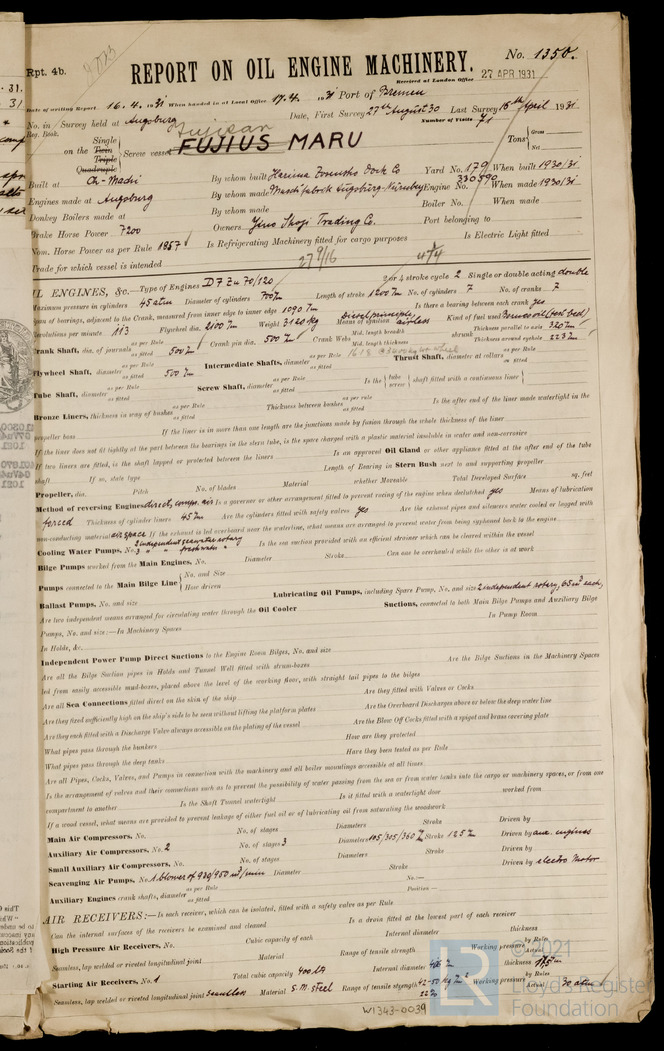 Rpt. 4b.
No. 1350.
REPORT ON OIL ENGINE MACHINERY.
Received at London Office 27 APR 1931
Date of writing Report 16.4.1931 When handed in at Local Office 17.4.31 Port of Bremen
No. in Survey held at Augsburg Date, First Survey 27th August 30 Last Survey 15th April 1931
Reg. Book. Number of Visits 71
on the Single Twin Triple Quadruple Screw vessel FUJIUS MARU Tons Gross Net
Built at By whom built Yard No. 179 When built 1930/31
Engines made at Augsburg By whom made Maschfabrik Augsburg-Nürnberg Engine No. 330590 When made 1930/31
Donkey Boilers made at By whom made Boiler No. When made
Brake Horse Power 7200 Owners Port belonging to
Nom. Horse Power as per Rule 1957 Is Refrigerating Machinery fitted for cargo purposes Is Electric Light fitted
Trade for which vessel is intended
OIL ENGINES, &c.—Type of Engines D7Zu 70/120 2 or 4 stroke cycle 2 Single or double acting double
Maximum pressure in cylinders 45 atm Diameter of cylinders 700 Length of stroke 1200 No. of cylinders 7 No. of cranks 7
Span of bearings, adjacent to the Crank, measured from inner edge to inner edge 1090 Is there a bearing between each crank yes
Revolutions per minute 113 Flywheel dia. 2100 Weight 3120 kg Means of ignition Diesel principle, airless Kind of fuel used
Crank Shaft, dia. of journals as per Rule as fitted 500 Crank pin dia. 500 Crank Webs Mid. length breadth Mid. length thickness shrunk Thickness parallel to axis 320 Thickness around eyehole 223
Flywheel Shaft, diameter as per Rule as fitted 500 Intermediate Shafts, diameter as per Rule as fitted Thrust Shaft, diameter at collars as per Rule as fitted
Tube Shaft, diameter as per Rule as fitted Screw Shaft, diameter as per Rule as fitted Is the tube screw shaft fitted with a continuous liner
Bronze Liners, thickness in way of bushes as per Rule as fitted Thickness between bushes as per Rule as fitted Is the after end of the liner made watertight in the
propeller boss If the liner is in more than one length are the junctions made by fusion through the whole thickness of the liner
If the liner does not fit tightly at the part between the bearings in the stern tube, is the space charged with a plastic material insoluble in water and non-corrosive
If two liners are fitted, is the shaft lapped or protected between the liners Is an approved Oil Gland or other appliance fitted at the after end of the tube
shaft If so, state type Length of Bearing in Stern Bush next to and supporting propeller
Propeller, dia. Pitch No. of blades Material whether Moveable Total Developed Surface sq. feet
Method of reversing Engines direct, comp. air Is a governor or other arrangement fitted to prevent racing of the engine when declutched yes Means of lubrication
forced Thickness of cylinder liners 45 Are the cylinders fitted with safety valves yes Are the exhaust pipes and silencers water cooled or lagged with
non-conducting material air space If the exhaust is led overboard near the waterline, what means are arranged to prevent water from being syphoned back to the engine
Cooling Water Pumps, No. 2 independent seawater rotary 3 " " freshwater " Is the sea suction provided with an efficient strainer which can be cleared within the vessel
Bilge Pumps worked from the Main Engines, No. Diameter Stroke Can one be overhauled while the other is at work
Pumps connected to the Main Bilge Line No. and Size How driven
Ballast Pumps, No. and size Lubricating Oil Pumps, including Spare Pump, No. and size 2 independent rotary, 65 m3 each,
Are two independent means arranged for circulating water through the Oil Cooler Suctions, connected to both Main Bilge Pumps and Auxiliary Bilge
Pumps, No. and size:—In Machinery Spaces In Pump Room
In Holds, &c.
Independent Power Pump Direct Suctions to the Engine Room Bilges, No. and size
Are all the Bilge Suction pipes in Holds and Tunnel Well fitted with strum-boxes Are the Bilge Suctions in the Machinery Spaces
led from easily accessible mud-boxes, placed above the level of the working floor, with straight tail pipes to the bilges
Are all Sea Connections fitted direct on the skin of the ship Are they fitted with Valves or Cocks
Are they fixed sufficiently high on the ship's side to be seen without lifting the platform plates Are the Overboard Discharges above or below the deep water line
Are they each fitted with a Discharge Valve always accessible on the plating of the vessel Are the Blow Off Cocks fitted with a spigot and brass covering plate
What pipes pass through the bunkers How are they protected
What pipes pass through the deep tanks Have they been tested as per Rule
Are all Pipes, Cocks, Valves, and Pumps in connection with the machinery and all boiler mountings accessible at all times
Is the arrangement of valves and their connections such as to prevent the possibility of water passing from the sea or from water tanks into the cargo or machinery spaces, or from one
compartment to another Is the Shaft Tunnel watertight Is it fitted with a watertight door worked from
If a wood vessel, what means are provided to prevent leakage of either fuel oil or of lubricating oil from saturating the woodwork
Main Air Compressors, No. No. of stages Diameters Stroke Driven by
Auxiliary Air Compressors, No. 2 No. of stages 3 Diameters Stroke 125 Driven by aux. engines
Small Auxiliary Air Compressors, No. No. of stages Diameters Stroke Driven by
Scavenging Air Pumps, No. 1 blower of 920/950 m3/min Diameter Stroke Driven by electro Motor
Auxiliary Engines crank shafts, diameter as per Rule as fitted No. Position
AIR RECEIVERS:—Is each receiver, which can be isolated, fitted with a safety valve as per Rule
Can the internal surfaces of the receivers be examined and cleaned Is a drain fitted at the lowest part of each receiver
High Pressure Air Receivers, No. Cubic capacity of each Internal diameter thickness
Seamless, lap welded or riveted longitudinal joint Material Range of tensile strength Working pressure by Rules Actual
Starting Air Receivers, No. 1 Total cubic capacity 400 Internal diameter thickness
Seamless, lap welded or riveted longitudinal joint seamless Material S.M. steel Range of tensile strength Working pressure by Rules Actual 30 atm
W1343-0039
© 2021
LR
Lloyd's Register
Foundation